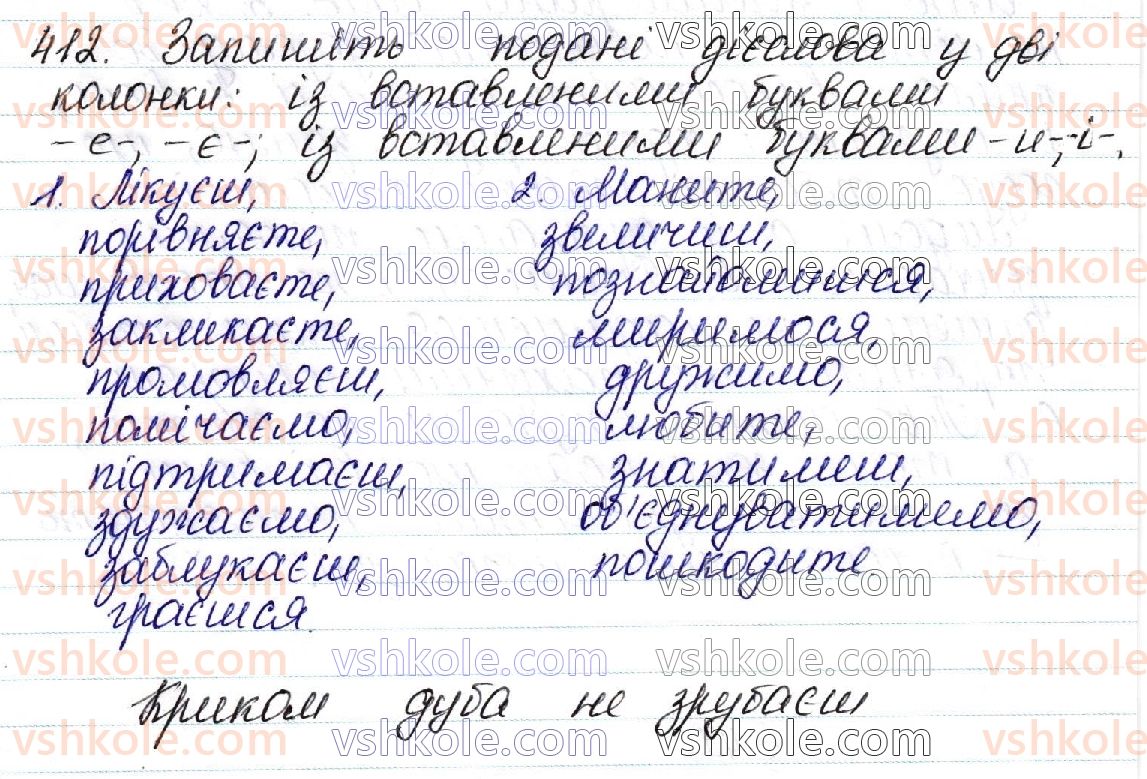 412. Запишіть подані дієслова у дві
колонки: із вставленими буквами
-е-, -є-; із вставленими буквами -и-, -і-.
1. Лікуєш, 2. Маните,
порівняєте, звеличиш,
приховаєте, познайомишся,
закликаєте, миримося,
промовляєш, дружимо,
помічаємо, любите,
підтримаєш, знатимеш,
здужаємо, об'єднуватимемо,
заблукаєш, пошкодите
граєшся.
Криком дуба не зрубаєш
vshkole.com